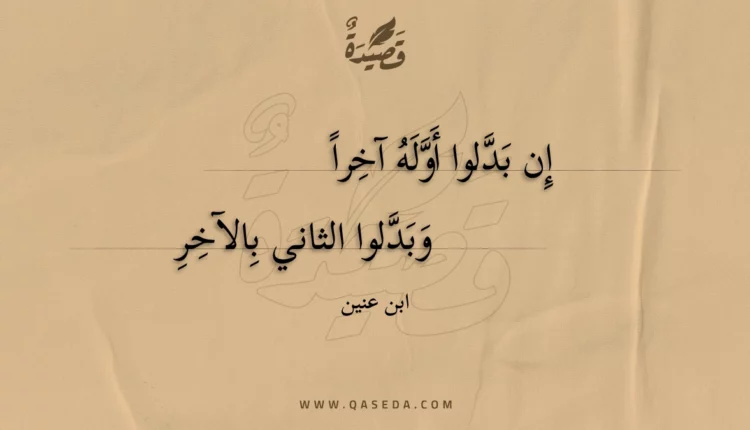 قَصِيدَةٌ
إِن بَدَّلوا أَوَّلَهُ آخِراً
وَبَدَّلوا الثاني بِالآخِرِ
ابن عنين
WWW.QASEDA.COM